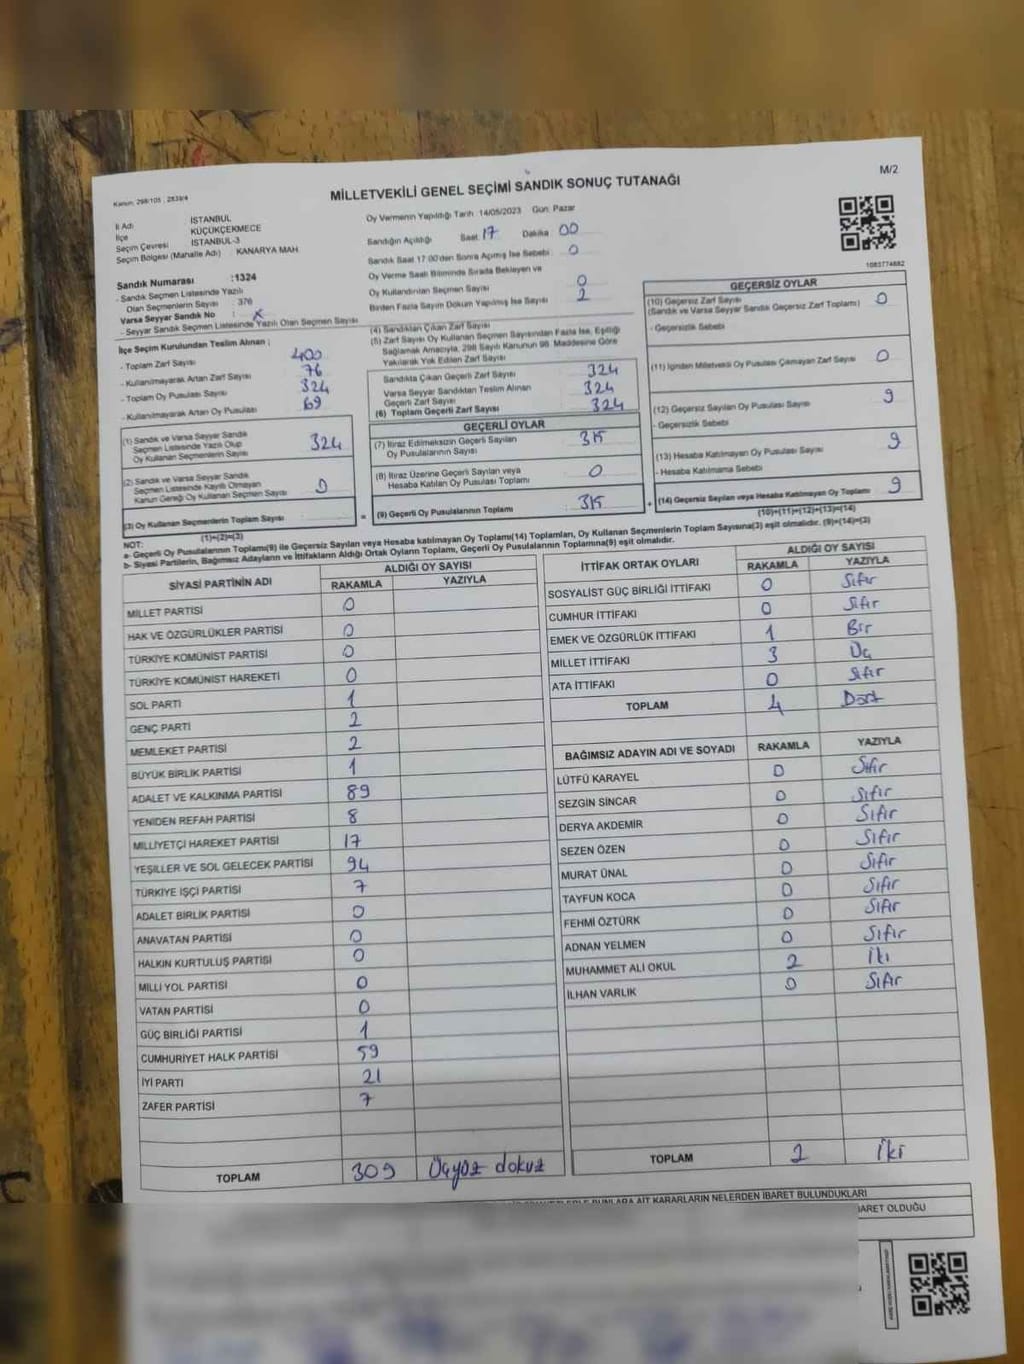 M/2
Kanun: 298/105 , 2839/4
MİLLETVEKİLİ GENEL SEÇİMİ SANDIK SONUÇ TUTANAĞI
İl Adı İSTANBUL
İlçe KÜÇÜKÇEKMECE
Seçim Çevresi İSTANBUL-3
Seçim Bölgesi (Mahalle Adı) KANARYA MAH.
Sandık Numarası :1324
- Sandık Seçmen Listesinde Yazılı
Olan Seçmenlerin Sayısı : 376
Varsa Seyyar Sandık No : x
- Seyyar Sandık Seçmen Listesinde Yazılı Olan Seçmen Sayısı
Oy Vermenin Yapıldığı Tarih 14/05/2023 Gün: Pazar
Sandığın Açıldığı Saat 17 Dakika 00
Sandık Saat 17:00'den Sonra Açılmış İse Sebebi 0
Oy Verme Saati Bitiminde Sırada Bekleyen ve
Oy Kullandırılan Seçmen Sayısı 0
Birden Fazla Sayım Döküm Yapılmış İse Sayısı 2
1083774882
İlçe Seçim Kurulundan Teslim Alınan ;
- Toplam Zarf Sayısı 400
- Kullanılmayarak Artan Zarf Sayısı 76
- Toplam Oy Pusulası Sayısı 324
- Kullanılmayarak Artan Oy Pusulası 69
(1) Sandık ve Varsa Seyyar Sandık
Seçmen Listesinde Yazılı Olup
Oy Kullanan Seçmenlerin Sayısı 324
(2) Sandık ve Varsa Seyyar Sandık
Seçmen Listesinde Kayıtlı Olmayan
Kanun Gereği Oy Kullanan Seçmen Sayısı 0
(3) Oy Kullanan Seçmenlerin Toplam Sayısı
(1)+(2)=(3)
(4) Sandıktan Çıkan Zarf Sayısı
(5) Zarf Sayısı Oy Kullanan Seçmen Sayısından Fazla İse, Eşitliği
Sağlamak Amacıyla, 298 Sayılı Kanunun 98. Maddesine Göre
Yakılarak Yok Edilen Zarf Sayısı
Sandıkta Çıkan Geçerli Zarf Sayısı 324
Varsa Seyyar Sandıktan Teslim Alınan
Geçerli Zarf Sayısı 324
(6) Toplam Geçerli Zarf Sayısı 324
GEÇERLİ OYLAR
(7) İtiraz Edilmeksizin Geçerli Sayılan
Oy Pusulalarının Sayısı 315
(8) İtiraz Üzerine Geçerli Sayılan veya
Hesaba Katılan Oy Pusulası Toplamı 0
= (9) Geçerli Oy Pusulalarının Toplamı 315
GEÇERSİZ OYLAR
(10) Geçersiz Zarf Sayısı
(Sandık ve Varsa Seyyar Sandık Geçersiz Zarf Toplamı) 0
- Geçersizlik Sebebi
(11) İçinden Milletvekili Oy Pusulası Çıkmayan Zarf Sayısı 0
(12) Geçersiz Sayılan Oy Pusulası Sayısı 9
- Geçersizlik Sebebi
(13) Hesaba Katılmayan Oy Pusulası Sayısı 9
- Hesaba Katılmama Sebebi
+ (14) Geçersiz Sayılan veya Hesaba Katılmayan Oy Toplamı 9
(10)+(11)+(12)+(13)=(14)
NOT:
a- Geçerli Oy Pusulalarının Toplamı(9) ile Geçersiz Sayılan veya Hesaba katılmayan Oy Toplamı(14) Toplamları, Oy Kullanan Seçmenlerin Toplam Sayısına(3) eşit olmalıdır. (9)+(14)=(3)
b- Siyasi Partilerin, Bağımsız Adayların ve İttifakların Aldığı Ortak Oyların Toplamı, Geçerli Oy Pusulalarının Toplamına(9) eşit olmalıdır.
SİYASİ PARTİNİN ADI ALDIĞI OY SAYISI
RAKAMLA YAZIYLA
MİLLET PARTİSİ 0
HAK VE ÖZGÜRLÜKLER PARTİSİ 0
TÜRKİYE KOMÜNİST PARTİSİ 0
TÜRKİYE KOMÜNİST HAREKETİ 0
SOL PARTİ 1
GENÇ PARTİ 2
MEMLEKET PARTİSİ 2
BÜYÜK BİRLİK PARTİSİ 1
ADALET VE KALKINMA PARTİSİ 89
YENİDEN REFAH PARTİSİ 8
MİLLİYETÇİ HAREKET PARTİSİ 17
YEŞİLLER VE SOL GELECEK PARTİSİ 94
TÜRKİYE İŞÇİ PARTİSİ 7
ADALET BİRLİK PARTİSİ 0
ANAVATAN PARTİSİ 0
HALKIN KURTULUŞ PARTİSİ 0
MİLLİ YOL PARTİSİ 0
VATAN PARTİSİ 0
GÜÇ BİRLİĞİ PARTİSİ 1
CUMHURİYET HALK PARTİSİ 59
İYİ PARTİ 21
ZAFER PARTİSİ 7
TOPLAM 309 Üçyüz dokuz
İTTİFAK ORTAK OYLARI ALDIĞI OY SAYISI
RAKAMLA YAZIYLA
SOSYALİST GÜÇ BİRLİĞİ İTTİFAKI 0 Sıfır
CUMHUR İTTİFAKI 0 Sıfır
EMEK VE ÖZGÜRLÜK İTTİFAKI 1 Bir
MİLLET İTTİFAKI 3 Üç
ATA İTTİFAKI 0 Sıfır
TOPLAM 4 Dört
BAĞIMSIZ ADAYIN ADI VE SOYADI RAKAMLA YAZIYLA
LÜTFÜ KARAYEL 0 Sıfır
SEZGİN SİNCAR 0 Sıfır
DERYA AKDEMİR 0 Sıfır
SEZEN ÖZEN 0 Sıfır
MURAT ÜNAL 0 Sıfır
TAYFUN KOCA 0 Sıfır
FEHMİ ÖZTÜRK 0 Sıfır
ADNAN YELMEN 0 Sıfır
MUHAMMET ALİ OKUL 2 İki
İLHAN VARLIK 0 Sıfır
TOPLAM 2 İki
BUNLARA AİT KARARLARIN NELERDEN İBARET BULUNDUKLARI
BARET OLDUĞU